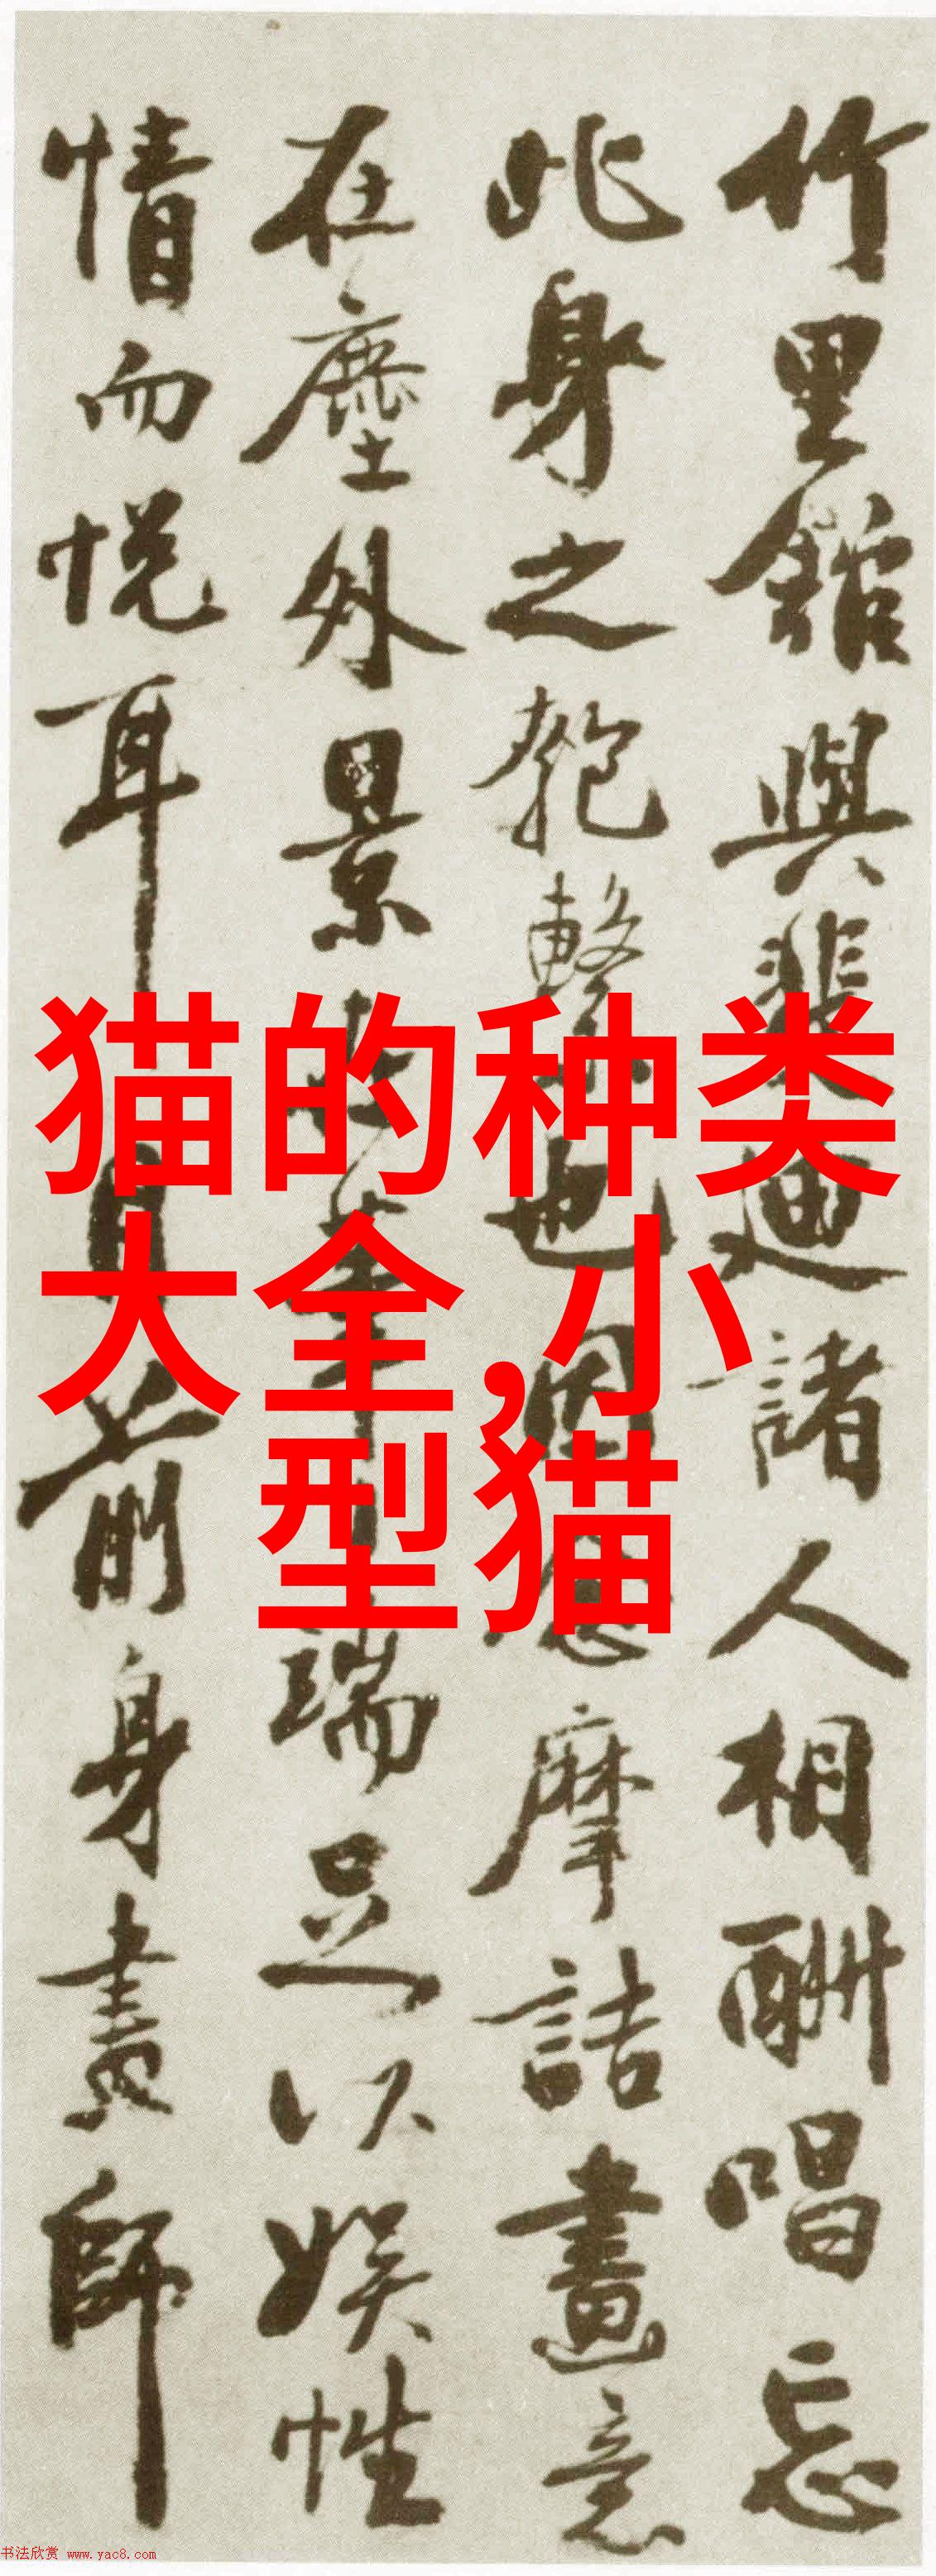 竹里館與裴迪諸人相酬唱忘
此身之匏繫也因念摩詰畫意
在塵外景在筆端足以娛性
情而悅耳目前身畫師
猫的种类
大全,小
型猫
书法欣赏 www.yac8.com